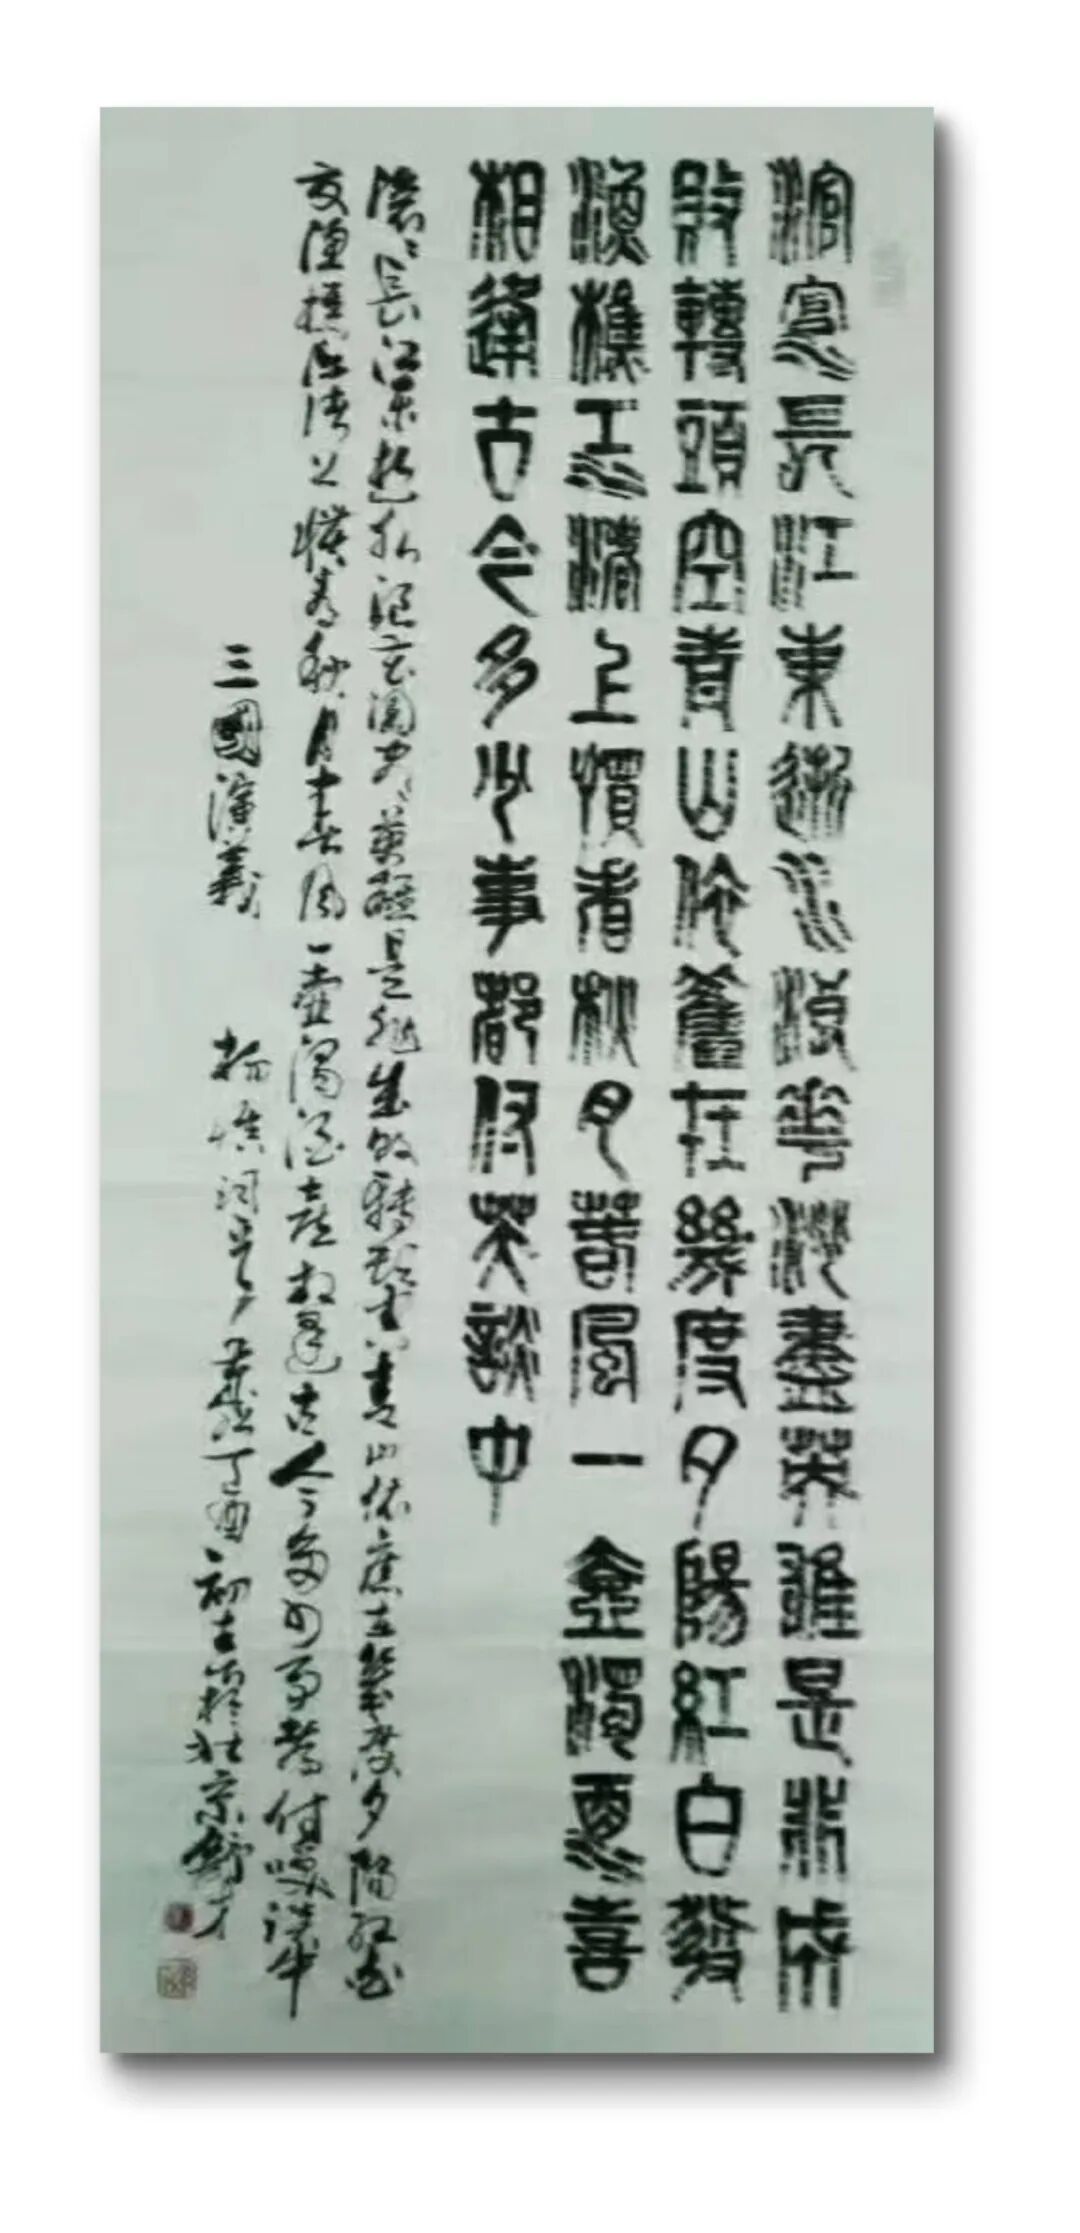 滾滾長江東逝水浪花淘盡英雄是非成
敗轉頭空青山依舊在幾度夕陽紅白發
漁樵江渚上慣看秋月春風一壺濁酒喜
相逢古今多少事都付笑談中
滾滾長江東逝水浪花淘盡英雄是非成敗轉頭空青山依舊在幾度夕陽紅白
发漁樵江渚上慣看秋月春風一壺濁酒喜相逢古今多少事都付笑談中
三國演義 楊慎詞 歲丁酉初 於北京